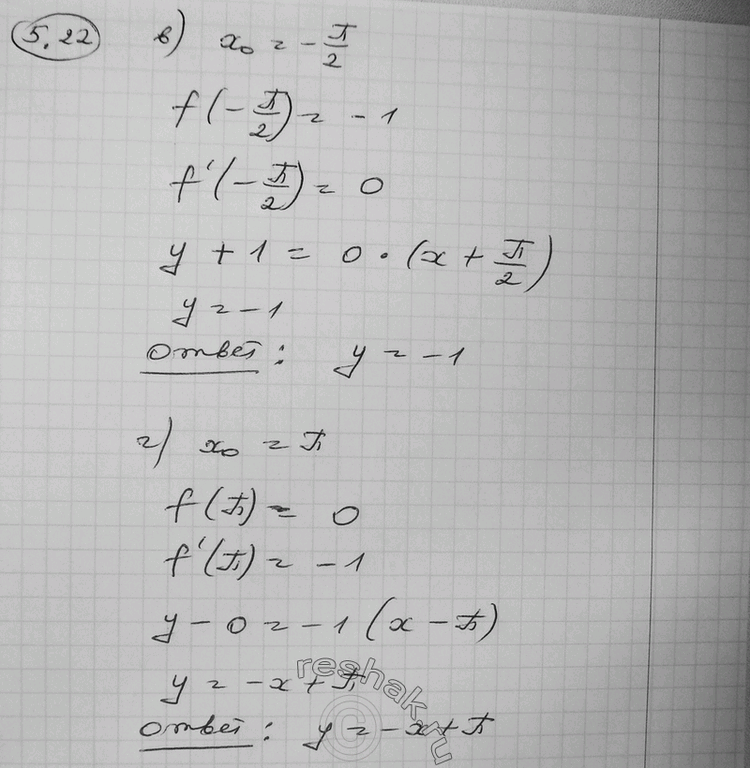 5.22 в) x₀ = -π/2
f(-π/2) = -1
f'(-π/2) = 0
y + 1 = 0 · (x + π/2)
y = -1
Ответ: y = -1
г) x₀ = π
f(π) = 0
f'(π) = -1
y - 0 = -1 (x - π)
y = -x + π
Ответ: y = -x + π
reshak.ru
©